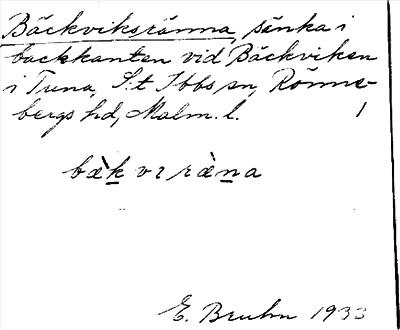 Bäckviksränna, sänka i
backkanten vid Bäckviken
i Tuna, S:t Ibbs sn, Rönne-
bergs hd, Malm. l. 1
bæ̀k vɪ ræ̀na
E. Bruhn 1933